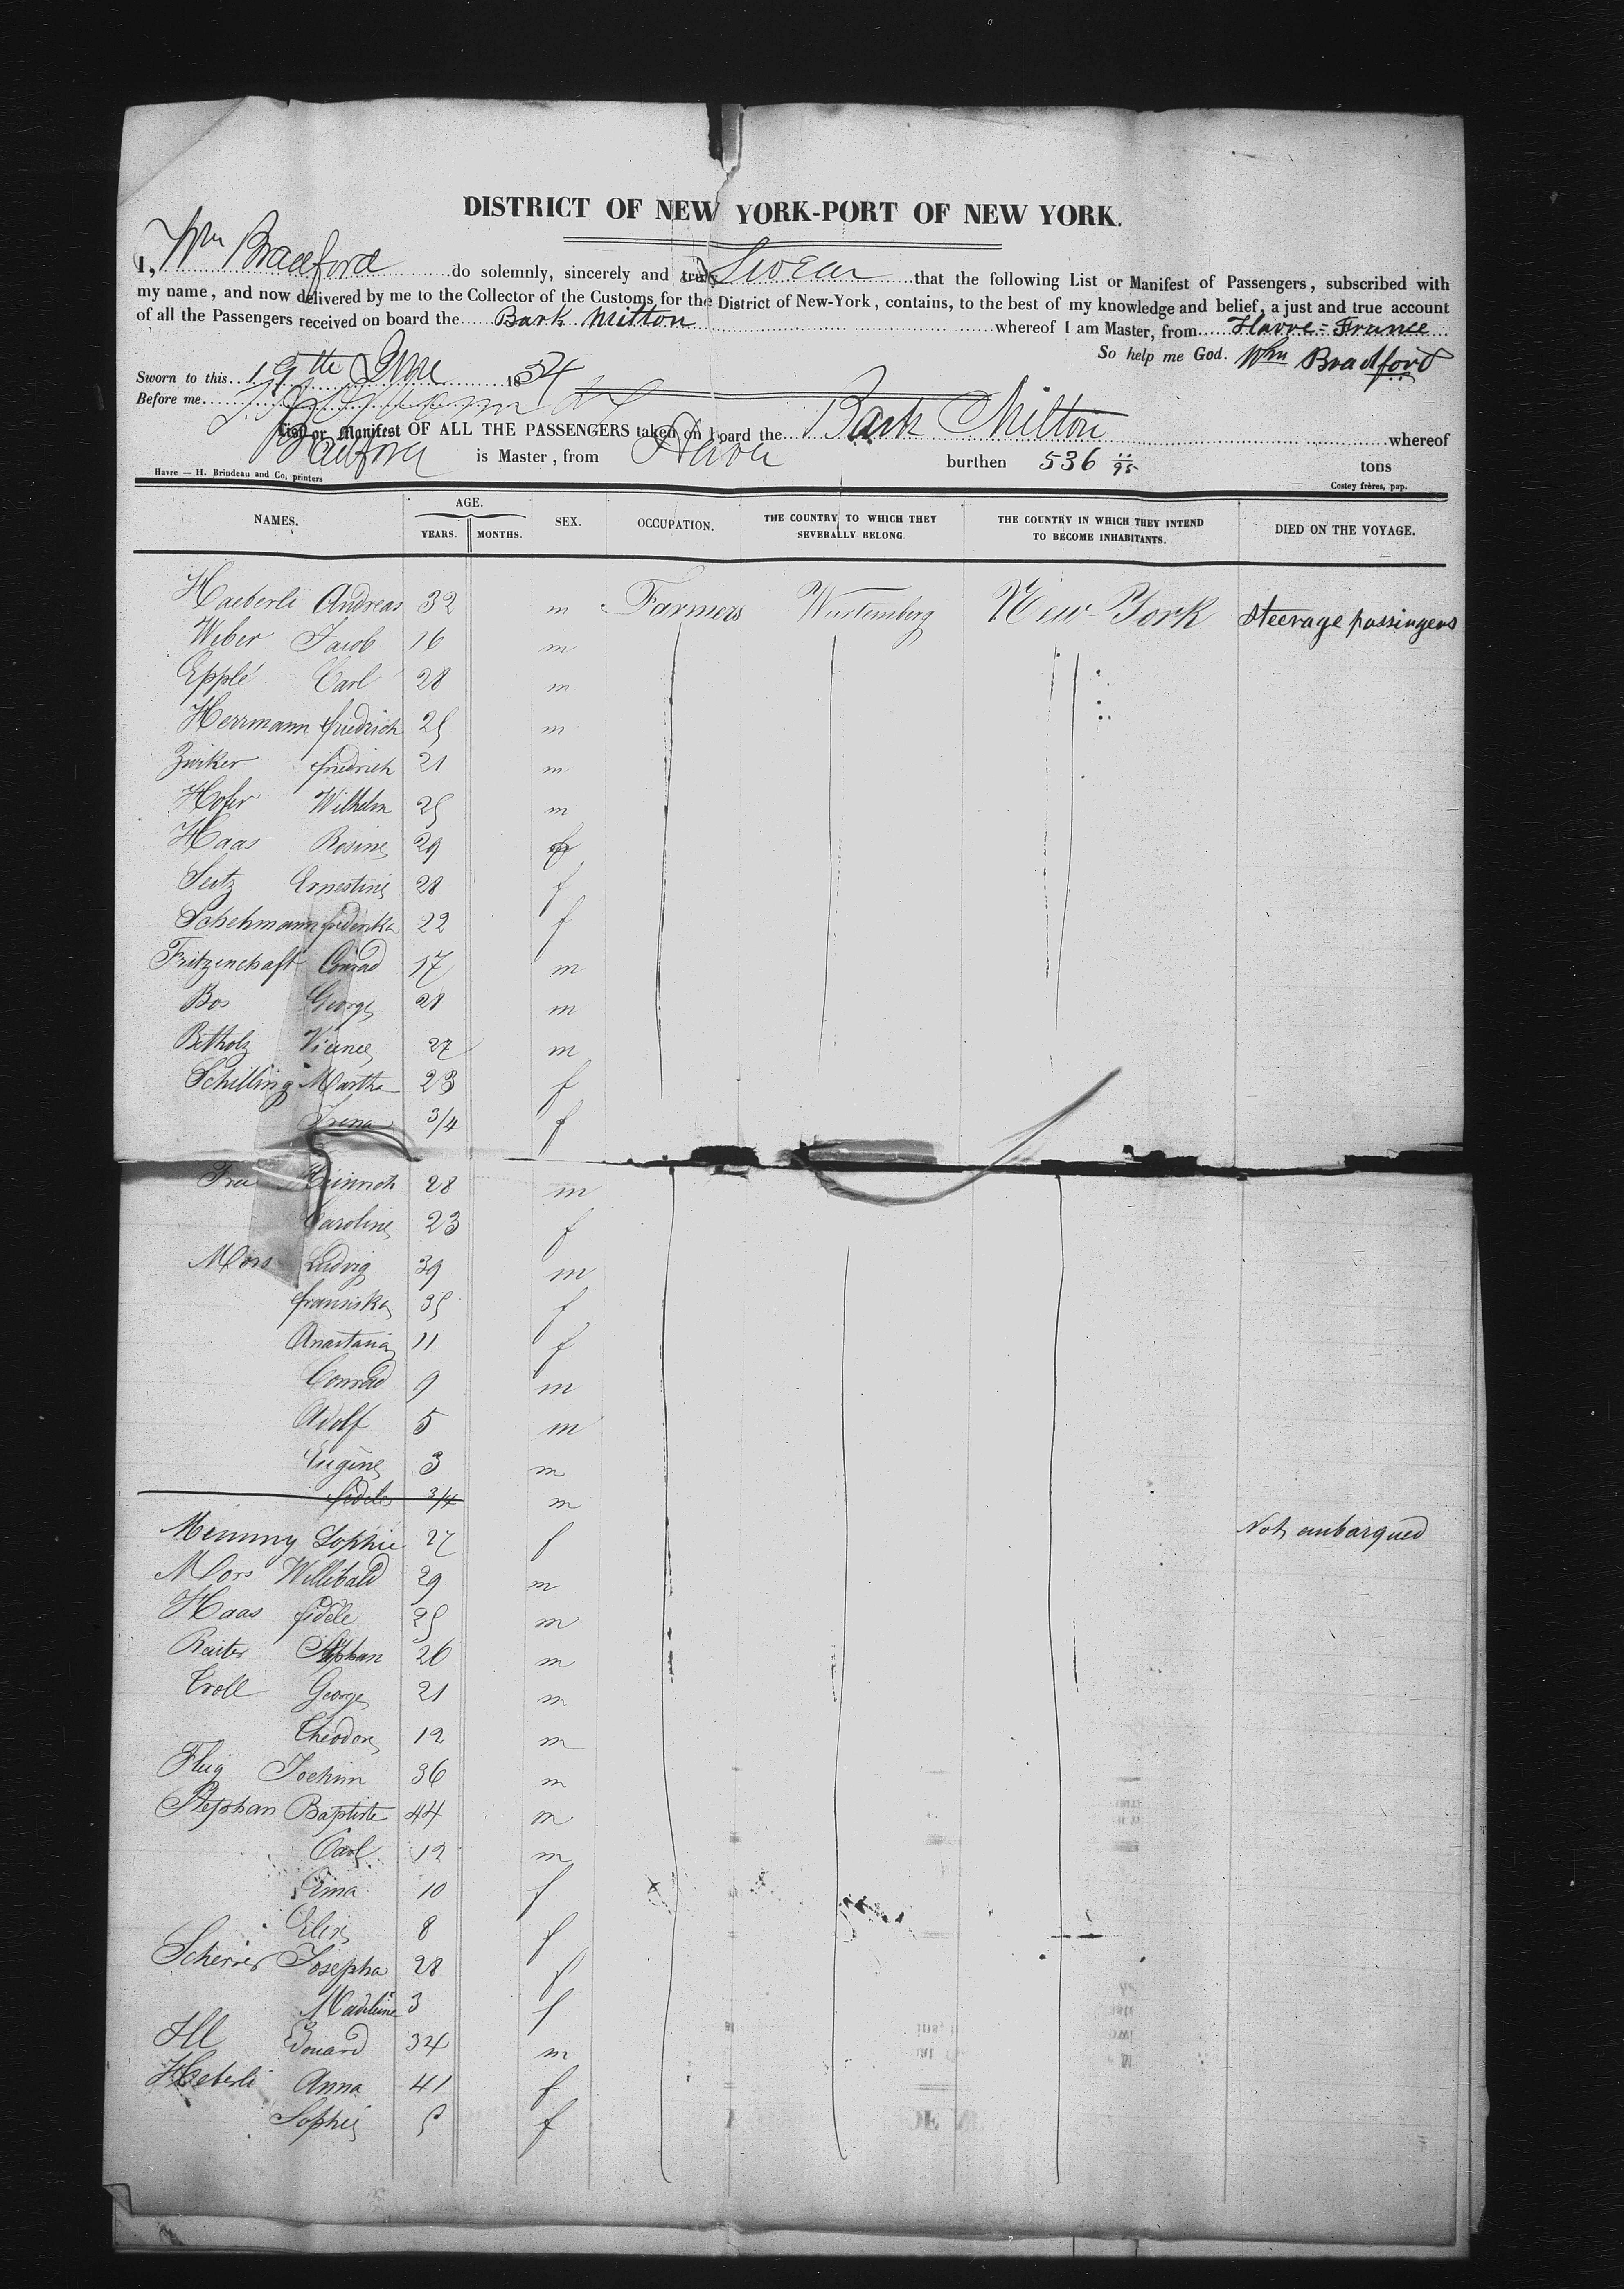 DISTRICT OF NEW YORK-PORT OF NEW YORK.
I, Wm Bradford do solemnly, sincerely and truly Swear that the following List or Manifest of Passengers, subscribed with
my name, and now delivered by me to the Collector of the Customs for the District of New-York, contains, to the best of my knowledge and belief, a just and true account
of all the Passengers received on board the Bark Milton whereof I am Master, from Havre-France
So help me God. Wm Bradford
Sworn to this 19th June 1854
Before me
List or Manifest OF ALL THE PASSENGERS taken on board the Bark Milton whereof
Bradford is Master, from Havre burthen 536 11/95 tons
Havre — H. Brindeau and Co, printers Costey frères, pap.
NAMES. AGE. YEARS. MONTHS. SEX. OCCUPATION. THE COUNTRY TO WHICH THEY SEVERALLY BELONG. THE COUNTRY IN WHICH THEY INTEND TO BECOME INHABITANTS. DIED ON THE VOYAGE.
Haeberli Andreas 32 m Farmers Wurtemberg New-York Steerage passingers
Weber Jacob 16 m
Epplé Carl 28 m
Herrmann friedrich 25 m
Zwiker friedrich 21 m
Hofer Wilhelm 25 m
Haas Rosine 29 f
Seitz Ernestine 28 f
Schehmann frederika 22 f
Fritzenchaft Conrad 17 m
Bos George 28 m
Betholz Vicence 27 m
Schilling Martha 23 f
Irena 3/4 f
Frei Heinrich 28 m
Caroline 23 f
Mors Ludvig 39 m
fransiska 35 f
Anastasia 11 f
Conrad 9 m
Adolf 5 m
Eugine 3 m
fidele 3/4 m
Memmy Sophie 27 f Not embarqued
Mors Willibald 29 m
Haas fidele 25 m
Reiter Stephan 26 m
Troll George 21 m
Theodore 12 m
Fluig Jochim 36 m
Stephan Baptiste 44 m
Carl 12 m
Erma 10 f
Elise 8 f
Scherrer Josepha 28 f
Madeleine 3 f
Ill Edouard 34 m
Heberli Anna 41 f
Sophie 5 f